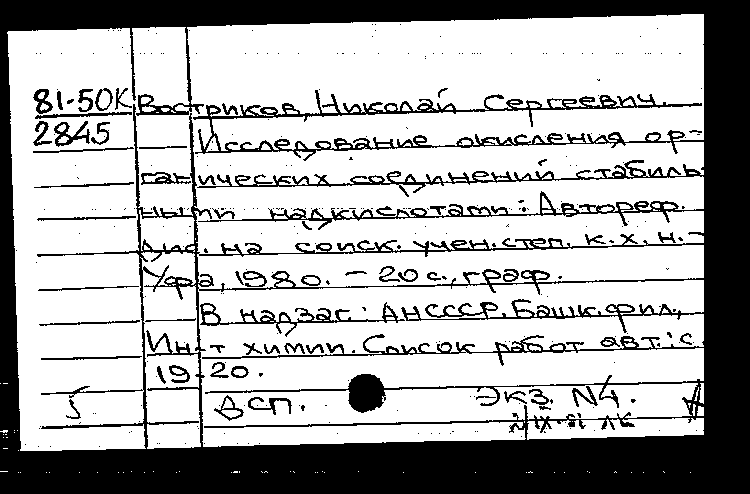 81-50К Востриков, Николай Сергеевич.
2845 Исследование окисления ор-
ганических соединений стабиль
ными надкислотами: Автореф.
дис. на соиск. учен. степ. к. х. н. -
Уфа, 1980. - 20 с., граф.
В надзаг: АНСССР. Башк. фил.,
Ин-т химии. Список работ авт.: с.
19-20.
5 ДСП. Экз. N4.
IX-81 ЛК